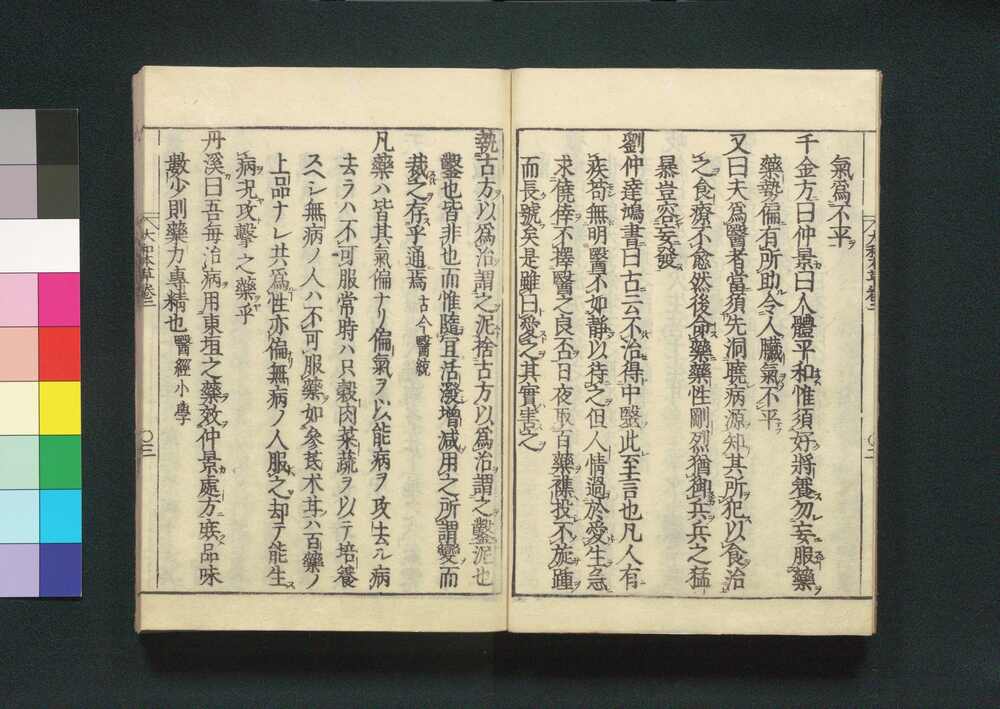 氣爲不平
千金方曰仲景曰人體平和惟須好將養勿妄服藥
藥勢偏有所助令人臟氣不平
又曰夫爲醫者當須先洞曉病源知其所犯以食治
之食療不愈然後命藥藥性剛烈猶御兵兵之猛
暴豈容妄發
劉仲達鴻書曰古云不治得中醫此至言也凡人有
疾苟無明醫不如靜以待之但人情過於愛生急
求僥倖不擇醫之良否日夜取百藥襍投不旋踵
而長號矣是雖曰愛之其實害之
大和本草卷二
〇二
執古方以爲治謂之泥捨古方以爲治謂之鑿泥也
鑿也皆非也而惟隨宜活潑增減用之所謂變而
裁之存乎通焉 古今醫統
凡藥ハ皆其氣偏ナリ偏氣ヲ以能病ヲ攻去ル病
去ラハ不可服常時ハ只穀肉菜蔬ヲ以テ培養
スヘシ無病ノ人ハ不可服藥如參芪朮耳ハ百藥ノ
上品ナレ共爲性亦偏無病ノ人服之却テ能生
病況攻擊之藥乎
丹溪曰吾每治病用東垣之藥效仲景處方庶品味
數少則藥力專精也 醫經小學
大和本草卷二
〇三